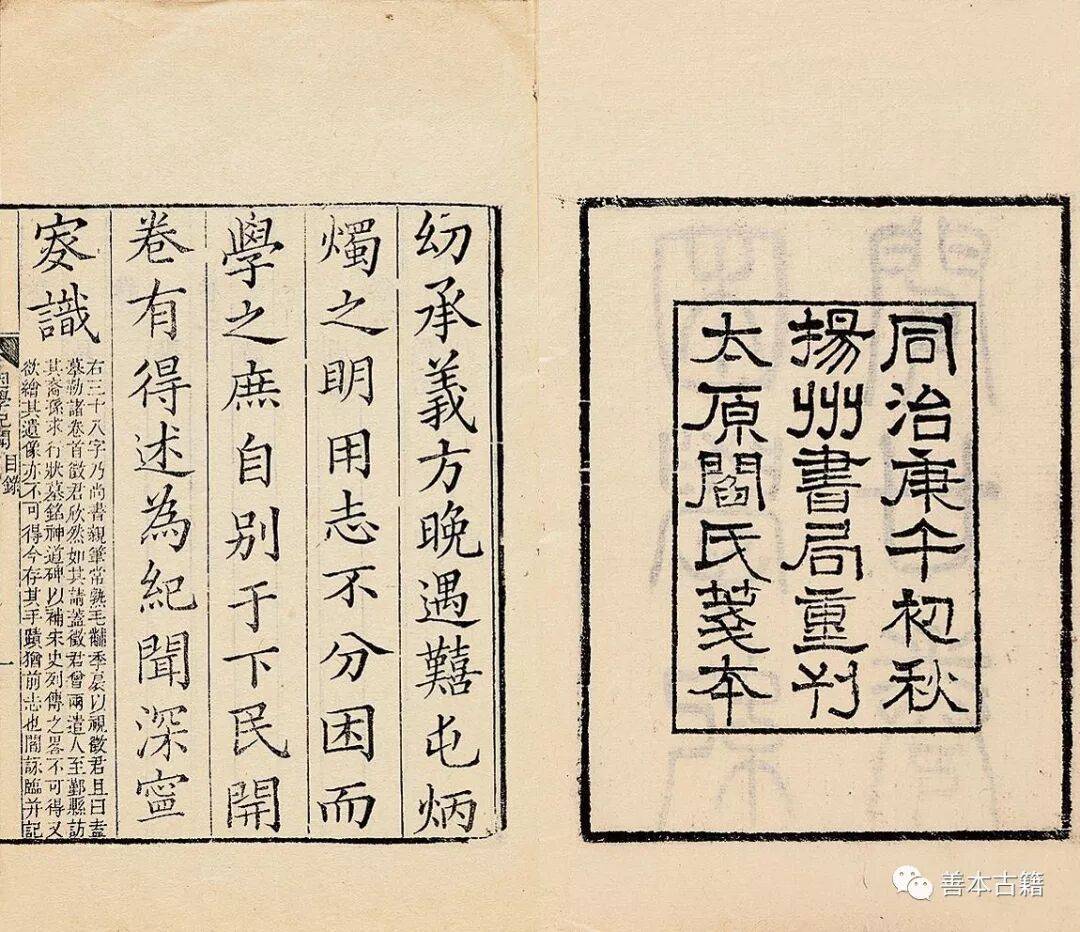 同治庚午初秋
揚州書局重刊
太原閻氏箋本
幼承義方晚遇囏屯炳
燭之明用志不分困而
學之庶自别于下民開
卷有得述為紀聞深寧
叜識
右三十八字乃尚書親筆常熟毛黼季扆以視徵君且曰盍
摹勒諸卷首徵君欣然如其請蓋徵君曾兩遣人至鄞縣訪
其裔孫求行狀墓銘神道碑以補宋史列傳之畧不可得又
欲繪其遺像亦不可得今存其手蹟猶前志也閻詠臨并記
困學紀聞 目錄 一
善本古籍